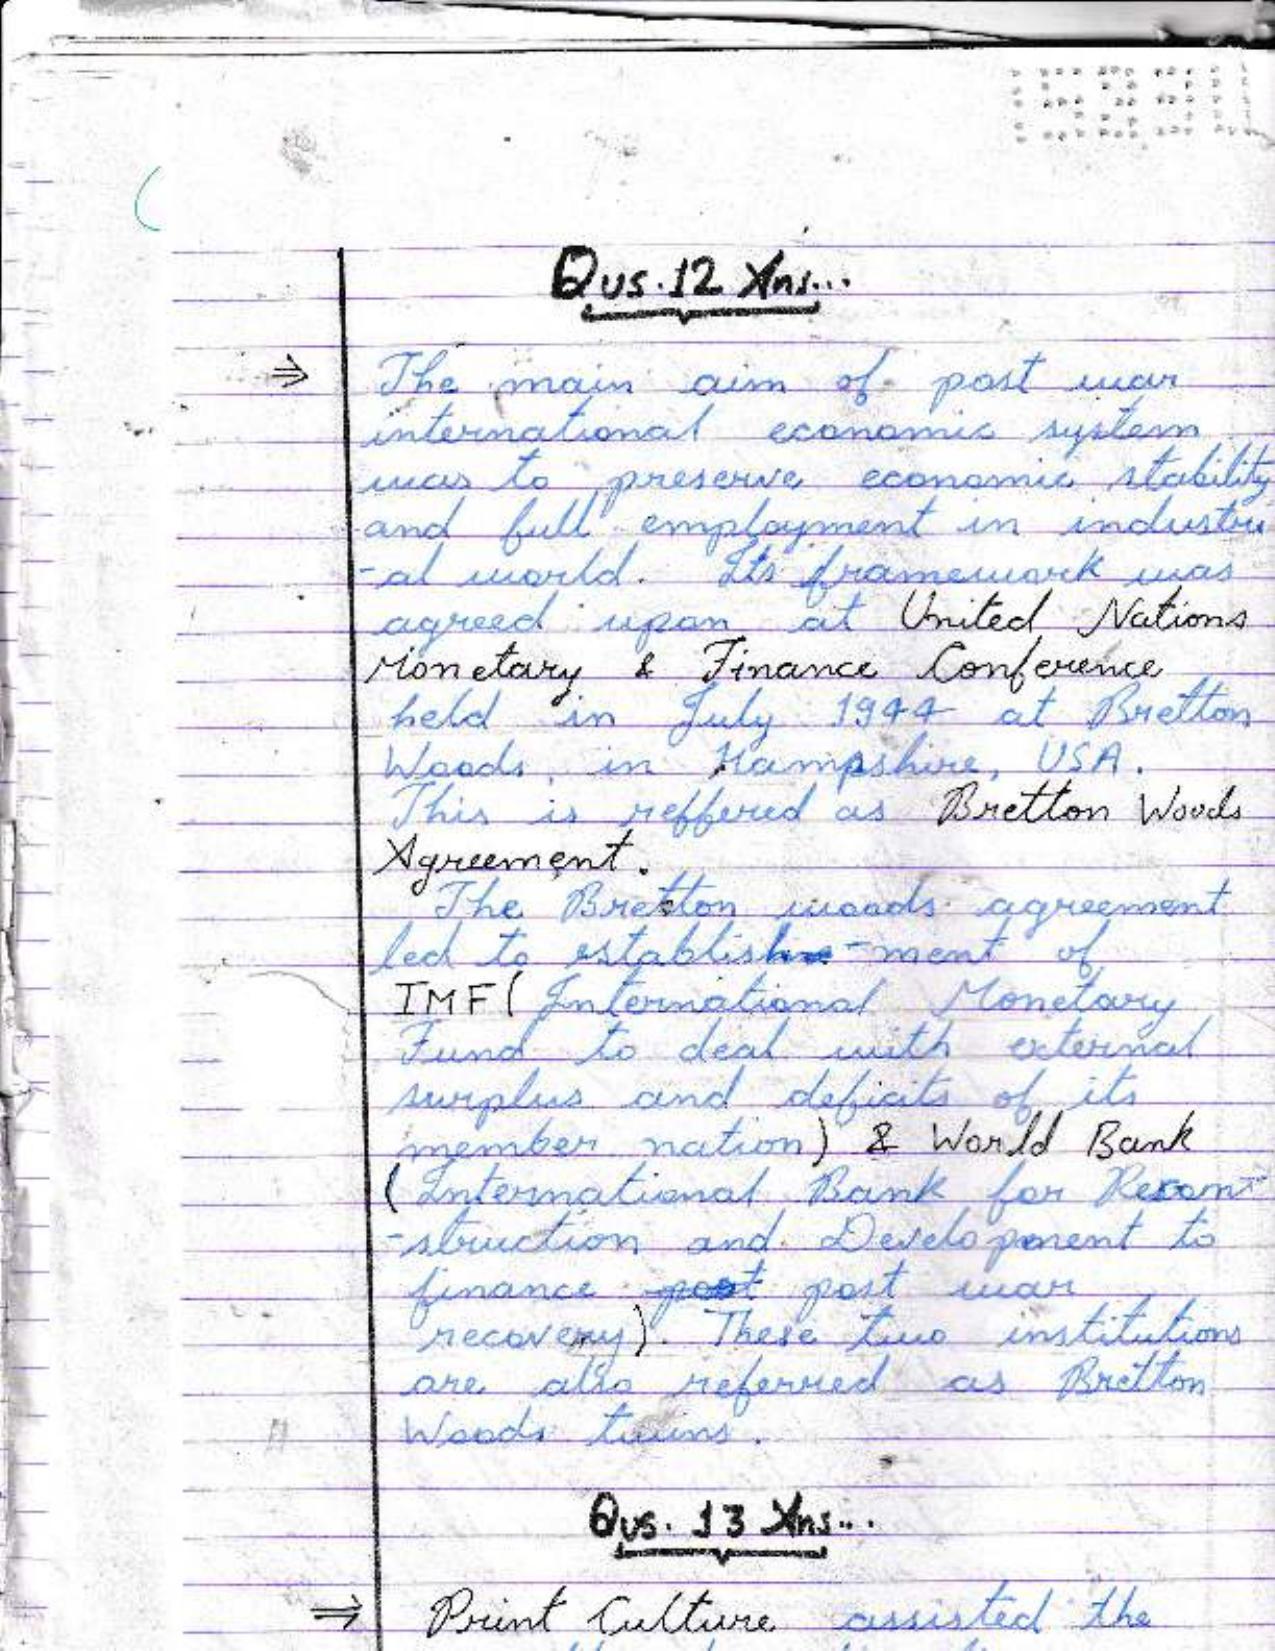 Qus. 12 Ans...
⇒ The main aim of post war
international economic system
was to preserve economic stability
and full employment in industri
-al world. Its framework was
agreed upon at United Nations
Monetary & Finance Conference
held in July 1944 at Bretton
Woods, in Hampshire, USA.
This is reffered as Bretton Woods
Agreement.
The Bretton woods agreement
led to establish-ment of
IMF( International Monetary
Fund to deal with external
surplus and deficits of its
member nation) & World Bank
(International Bank for Recon-
-struction and Development to
finance post post war
recovery). These two institutions
are also referred as Bretton
Woods twins.
Qus. 13 Ans...
⇒ Print Culture assisted the